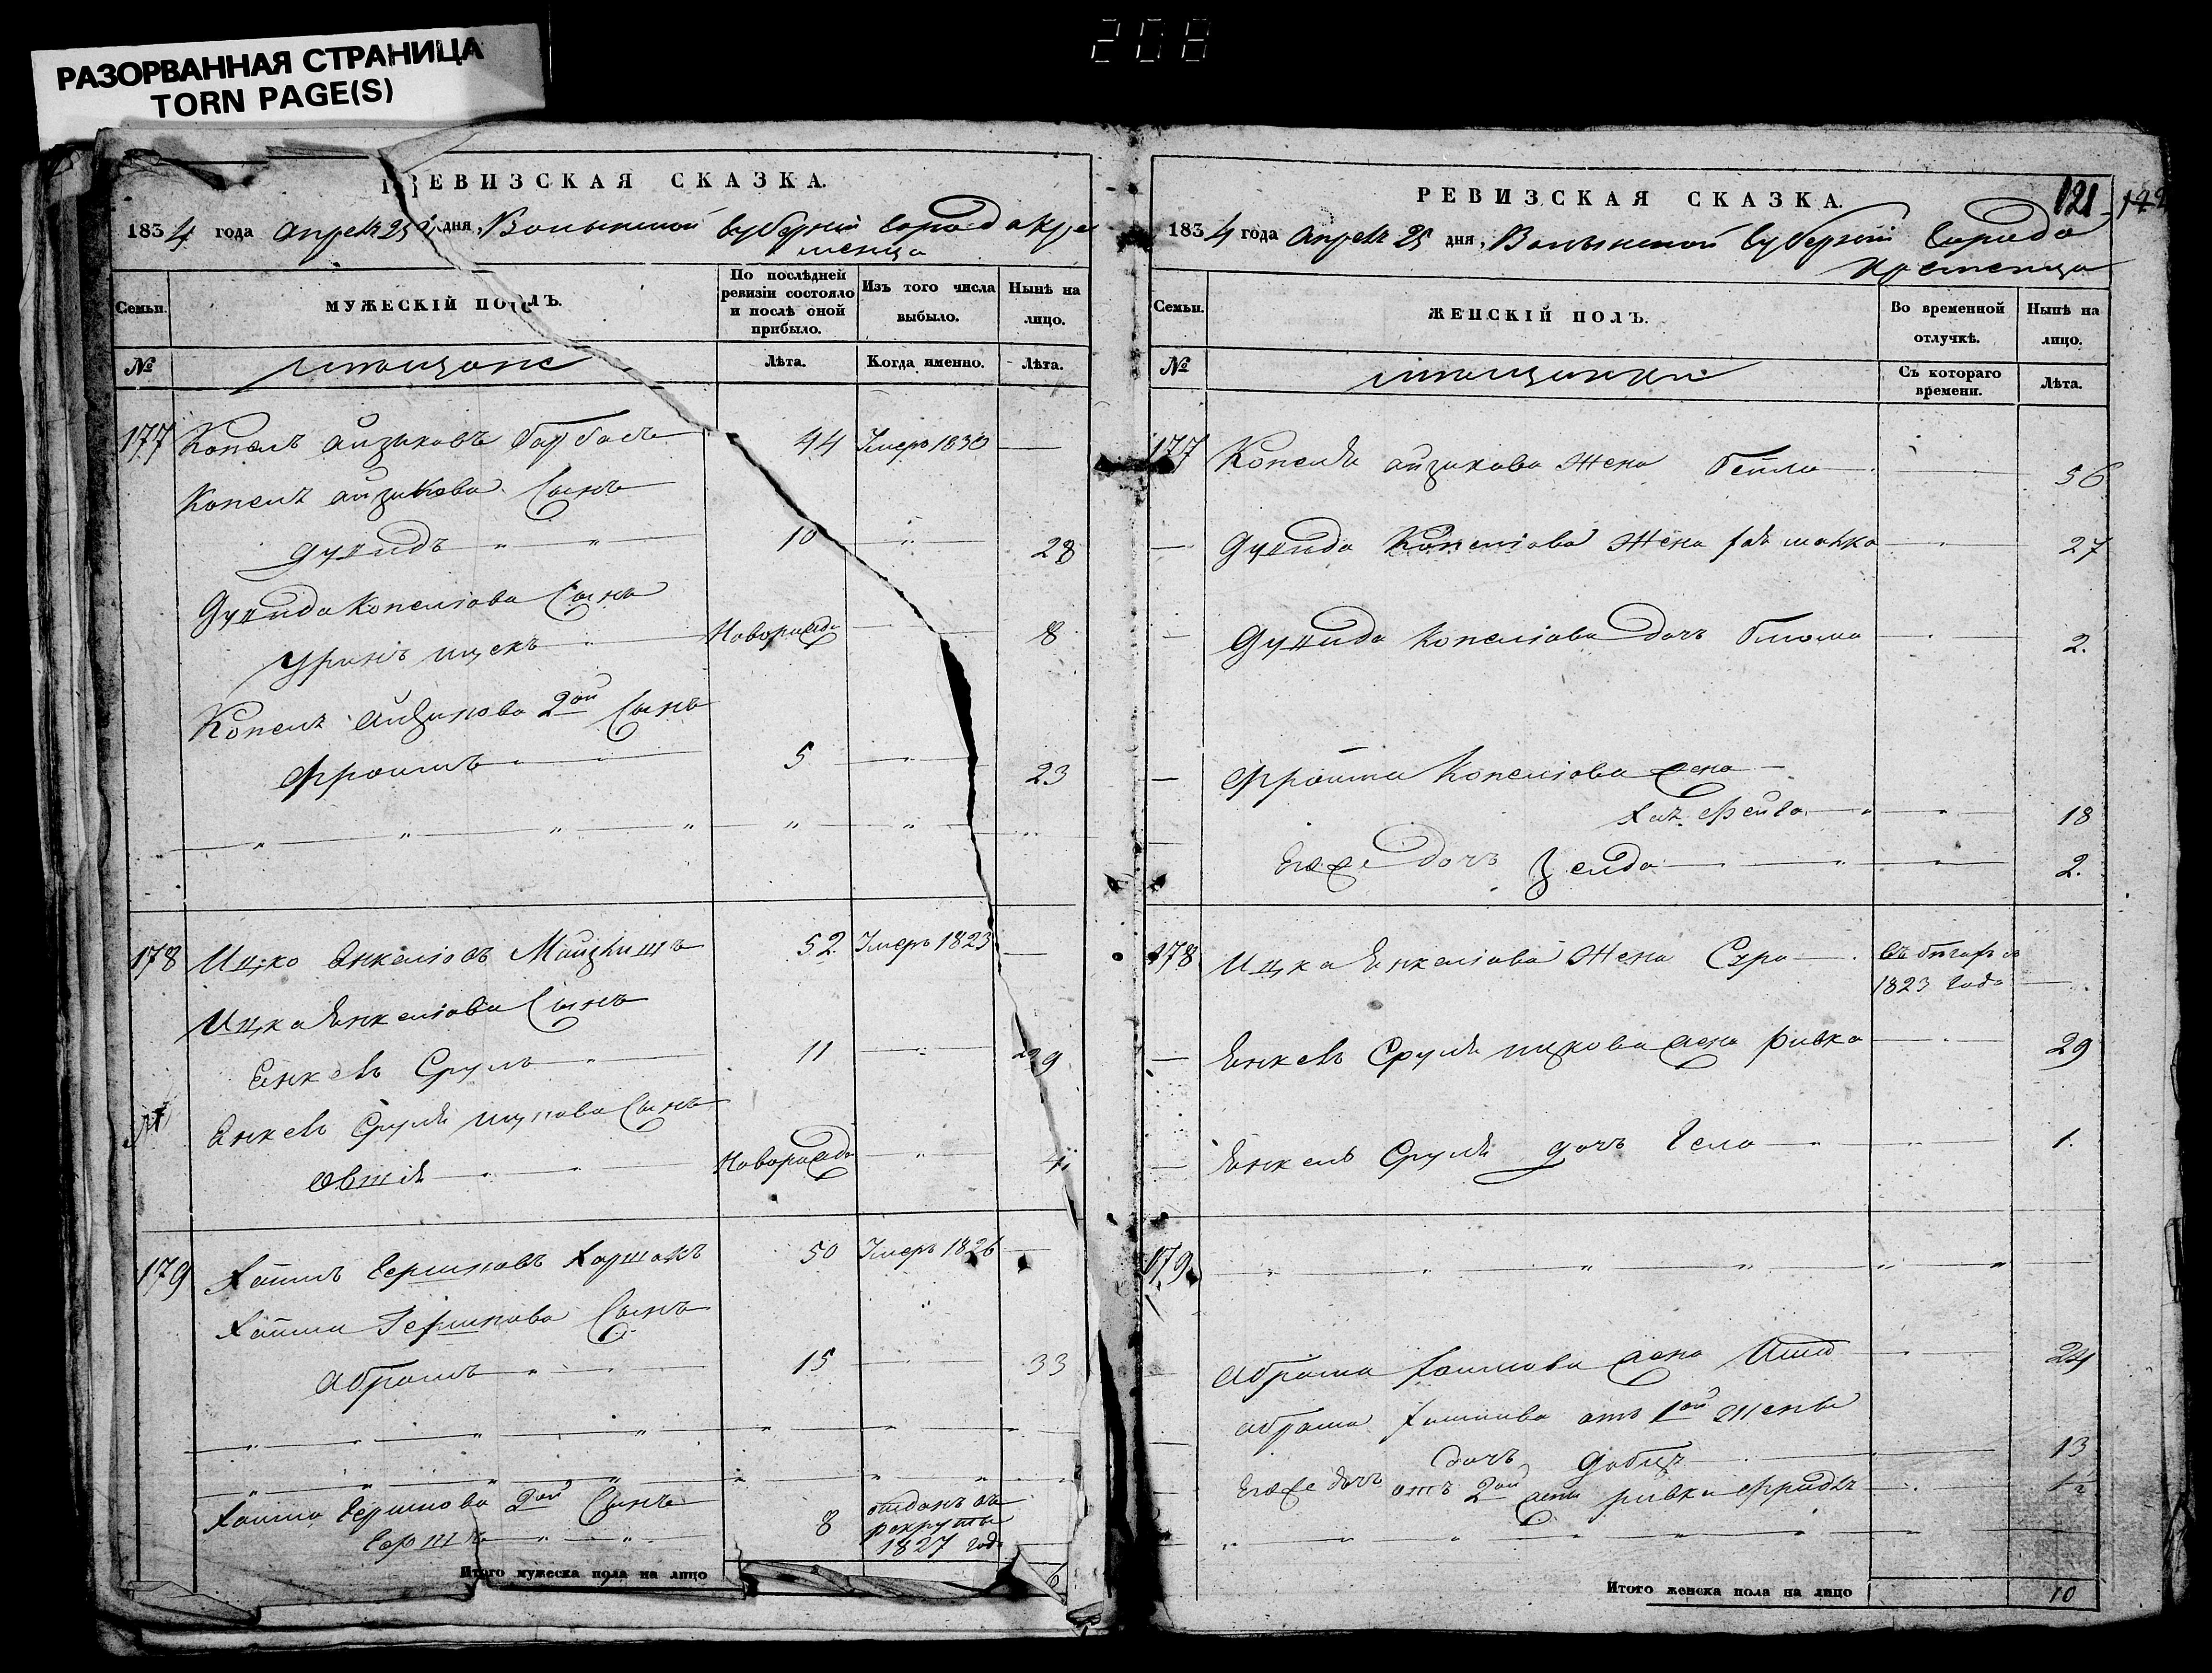 208
РАЗОРВАННАЯ СТРАНИЦА
TORN PAGE(S)
РЕВИЗСКАЯ СКАЗКА.
1834 года Апреля 25 дня, Волынской Губернии Города Кре
менца
Семьи.
МУЖЕСКІЙ ПОЛЪ.
По послѣдней ревизіи состояло и послѣ оной прибыло.
Изъ того числа выбыло.
Нынѣ на лицо.
№
мещане
Лѣта.
Когда именно.
Лѣта.
177 Копель Айзиковъ 44 Умеръ 1830 —
Копеля Айзикова Сынъ
Дувидъ 10 28
Дувида Копелiова Сынъ
Новорожде 8
Копеля Айзикова 2ой Сынъ
Фроимъ 5 23
178 Ицко Енкелiовъ 52 Умеръ 1823 —
Ицка Енкелiова Сынъ
Енкель Сруль 11 29
Енкель Сруля Ицкова Сынъ
Овшiя Новорожде 4
179 Хаимъ Гершковъ 50 Умеръ 1826 —
Хаима Гершкова Сынъ
Абрамъ 15 33
Хаима Гершкова 2ой Сынъ
Гершъ 8 отданъ въ
рекруты
1827 года
Итого мужеска пола на лицо 6
РЕВИЗСКАЯ СКАЗКА.
121
1834 года Апреля 25 дня, Волынской Губернии Города
Кременца
Семьи.
ЖЕНСКІЙ ПОЛЪ.
Во временной отлучкѣ.
Нынѣ на лицо.
№
мещанки
Съ котораго времени.
Лѣта.
177 Копеля Айзикова Жена Бейла 56
— Дувида Копелiова Жена 27
— Дувида Копелiова дочь Блюма 2.
— Фроима Копелiова жена
Хая Фейга 18
Ехже дочь Зелда 2.
178 Ицка Енкелiова Жена Сура въ бегахъ съ
1823 года —
— Енкель Сруля Ицкова жена Ривка 29
— Енкель Сруля дочь Гела 1.
179
Абрама Хаимова жена 24
Абрама Хаимова отъ 1ой жены
дочь 13
Ехже дочь отъ 2ой жены Ривки
Итого женска пола на лицо 10